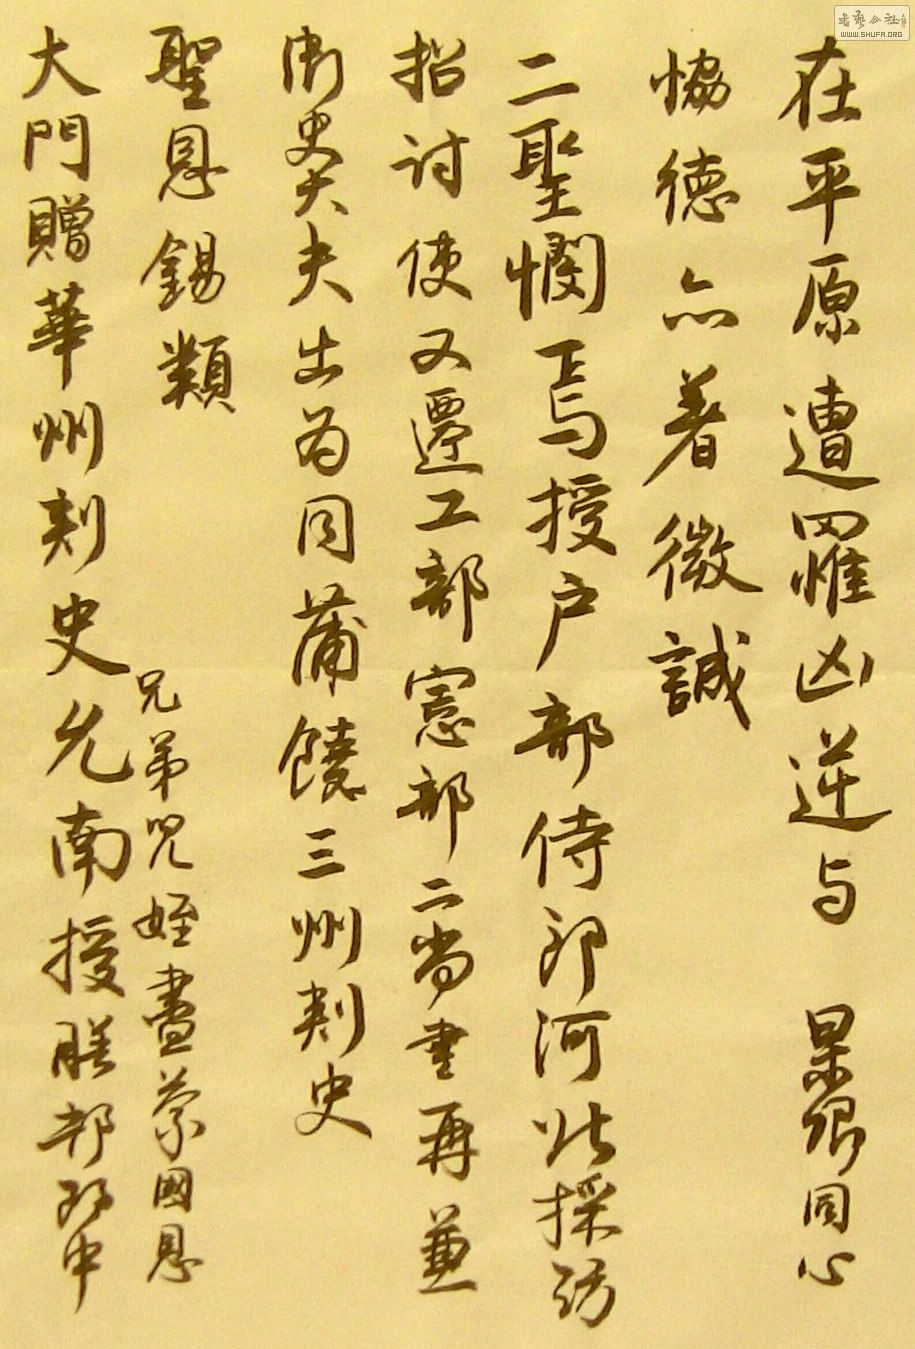 在平原遭罹凶逆与 杲卿同心
恊德亦著微誠
二聖憫焉授户部侍郎河北採訪
招討使又遷工部憲部二尚書再兼
御史大夫出為同蒲饒三州刺史
聖恩錫類
兄弟兒姪盡蒙國恩
大門贈華州刺史允南授膳部郎中
書藝公社
WWW.SHUFA.ORG